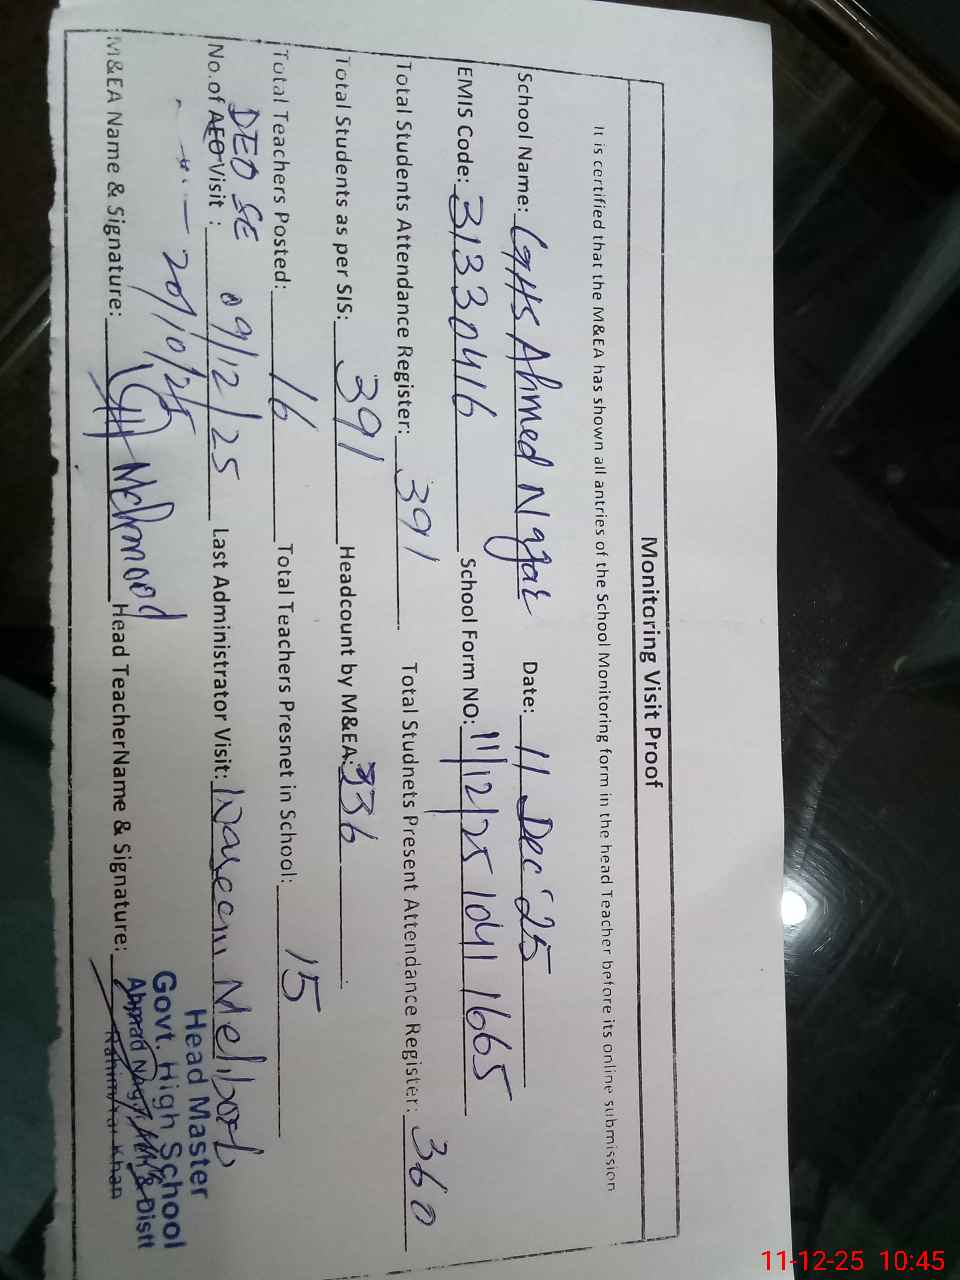 Monitoring Visit Proof
It is certified that the M&EA has shown all antries of the School Monitoring form in the head Teacher before its online submission
School Name: GHS Ahmed Nagar Date: 11 Dec '25
EMIS Code: 31330416 School Form NO: 11/12/25 1041 1665
Total Students Attendance Register: 391 Total Studnets Present Attendance Register: 360
Total Students as per SIS: 391 Headcount by M&EA: 336
Total Teachers Posted: 16 Total Teachers Presnet in School: 15
DEO SE
No.of AEO Visit : 09/12/25 Last Administrator Visit: Waseem
20/10/25
M&EA Name & Signature: Mehmood Head TeacherName & Signature:
Head Master
Govt. High School
Ahmad Distt
Khan
11-12-25 10:45